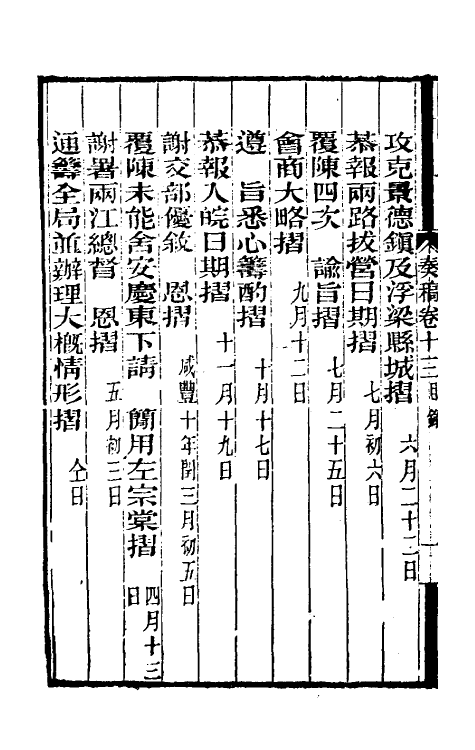 奏稿卷十三目錄
攻克景德鎮及浮梁縣城摺 六月二十二日
恭報兩路拔營日期摺 七月初六日
覆陳四次 諭旨摺 七月二十五日
會商大略摺 九月十二日
遵 旨悉心籌酌摺 十月十七日
恭報入皖日期摺 十一月十九日
謝交部優敘 恩摺 咸豐十年閏三月初五日
覆陳未能舍安慶東下請 簡用左宗棠摺 四月十三日
謝署兩江總督 恩摺 五月初三日
通籌全局並辦理大概情形摺 仝日